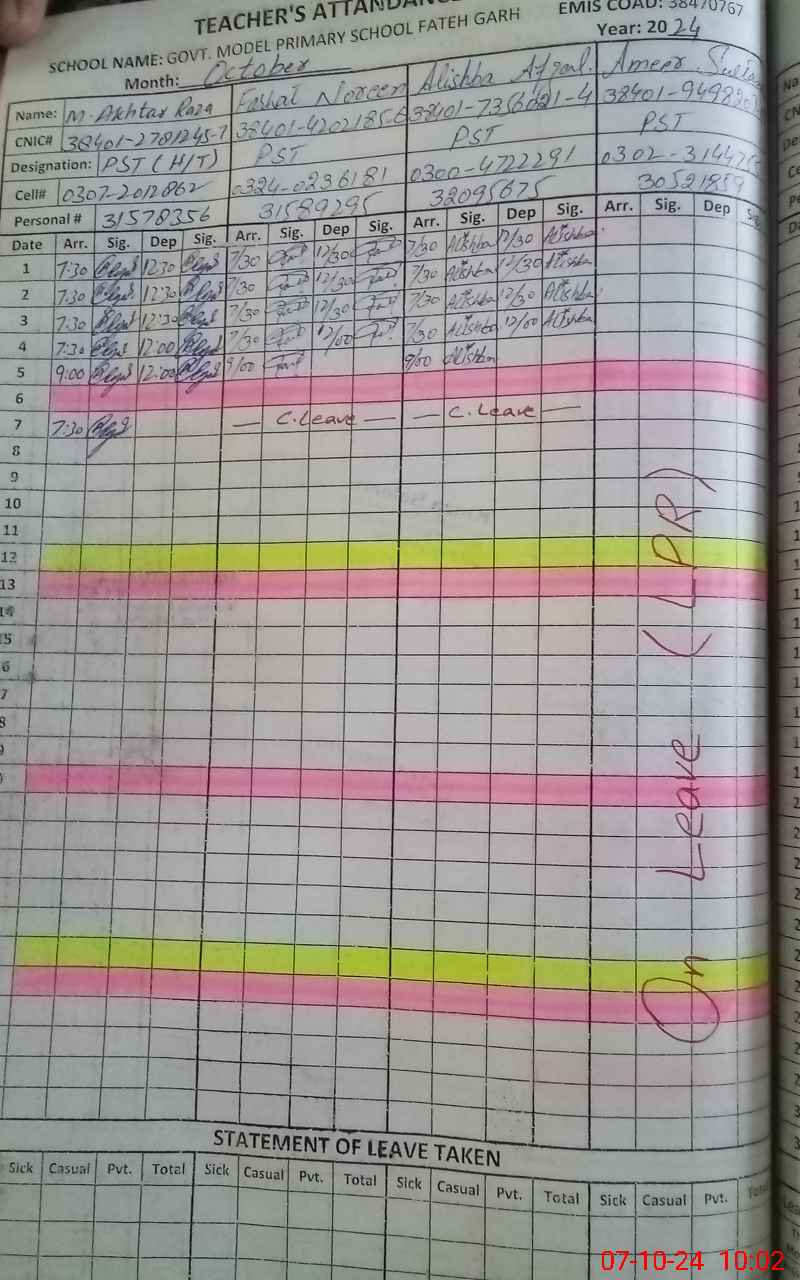 TEACHER'S ATTANDANCE
EMIS COAD: 38470767
SCHOOL NAME: GOVT. MODEL PRIMARY SCHOOL FATEH GARH
Year: 2024
Month: October
Name: M. Akhtar Raza Farhat Noreen Alishba Afzal. Ameer
CNIC# 38401-2781245-7
Designation: PST (H/T) PST PST PST
Cell# 0307-2012862 0324-0236181 0300-4722291
Personal # 31578356 31589295 32095675 30521859
Date Arr. Sig. Dep Sig. Arr. Sig. Dep Sig. Arr. Sig. Dep Sig. Arr. Sig. Dep
1 7:30 12:30 7/30 12/30 7/30 Alishba 12/30 Alishba
2 7:30 12:30 7/30 12/30 7/30 Alishba 12/30 Alishba
3 7:30 12:30 7/30 12/30 7/30 Alishba 12/30 Alishba
4 7:30 12:00 7/30 12/00 7/30 Alishba 12/00 Alishba
5 9:00 12:00 9/00 9/00 Alishba
6
7 7:30 — C. Leave — — C. Leave —
8
9
10
11
12
13
14
On Leave (LPR)
STATEMENT OF LEAVE TAKEN
Sick Casual Pvt. Total Sick Casual Pvt. Total Sick Casual Pvt. Total Sick Casual Pvt. Total
07-10-24 10:02